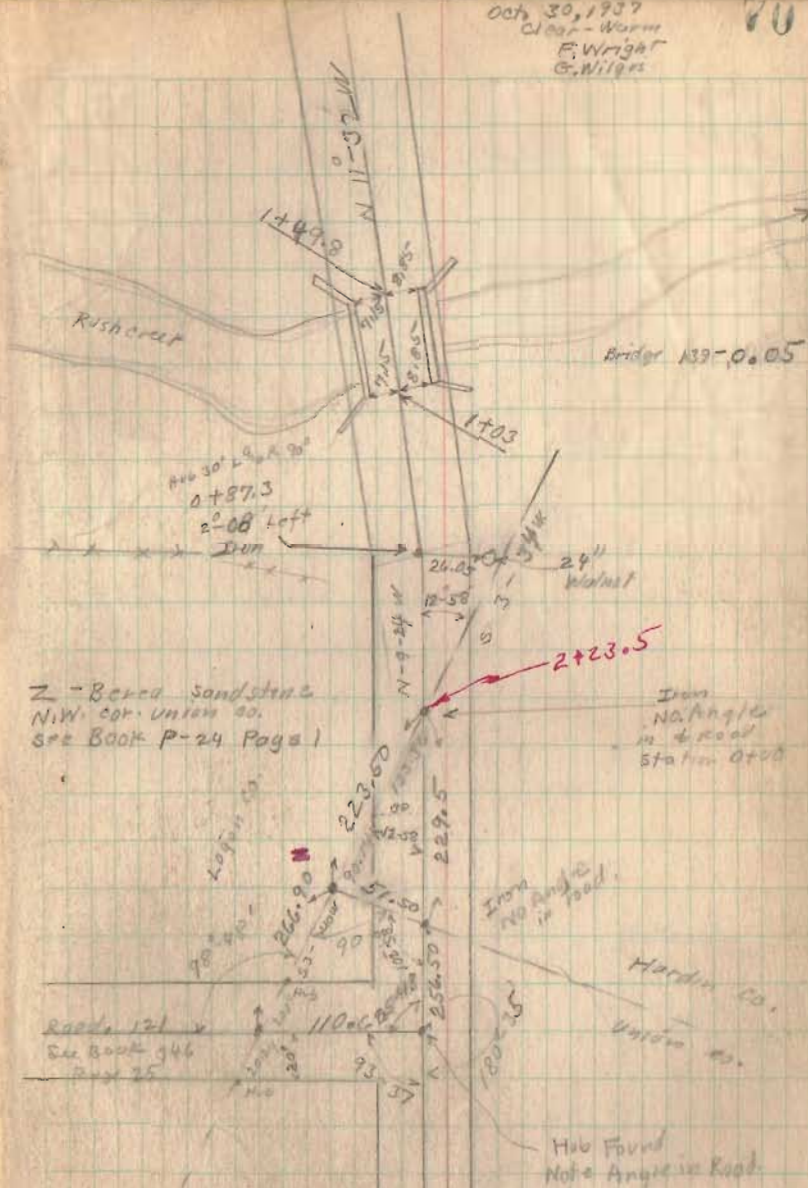 Oct. 30, 1937
70
Clear - Warm
F. Wright
G. Wilgus
N 11°-32' W
1+49.8
8.85
7.15
Rushcreek
7.15
8.85
Bridge 139-0.05
1+03
0+87.3
2°-08' Left
Iron
26.05
24"
Walnut
12.50
N-9-24 W
2+23.5
Z - Berea Sandstone
N.W. cor. Union Co.
See Book P-24 Page 1
Iron
No. Angle
in ⅊ Road
Station 0+00
223.60
229.5
12.50
Logan Co.
266.90
51.50
90
Iron
No Angle
in road.
256.50
Hardin Co.
Union Co.
Road 121
110.6
See Book 946
Page 25
93
37
Hub Found
Note Angle in Road.